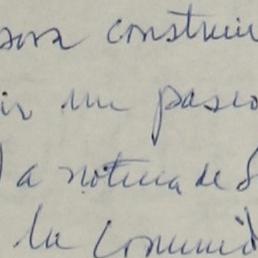 para construir
ir un paseo
a noticia de S
la comunid